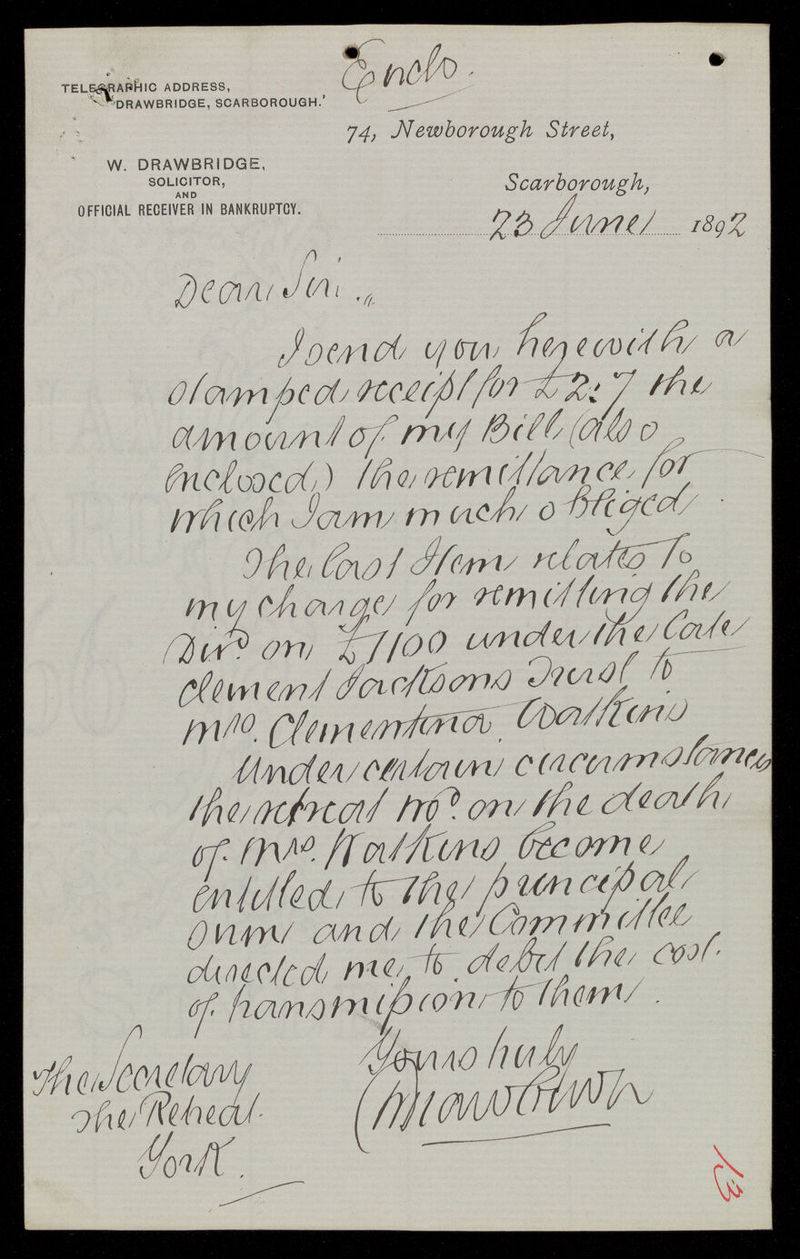 Enclo.
TELEGRAPHIC ADDRESS,
"DRAWBRIDGE, SCARBOROUGH."
74, Newborough Street,
W. DRAWBRIDGE,
SOLICITOR,
AND
OFFICIAL RECEIVER IN BANKRUPTCY.
Scarborough,
23 June 1892
Dear Sir,
I send you herewith a
stamped receipt for £2:7 the
amount of my Bill (also
enclosed,) the remittance for
which I am much obliged
The last Item relates to
my charge for remitting the
Divd on £1100 under the late
Clement Jacksons Trust to
Mrs. Clementina Watkins
Under certain circumstances
the retreat wod. on the death
of Mrs. Watkins become
entitled to the principal
sum and the Committee
directed me to debit the cost
of transmission to them.
Yours truly
W Drawbridge
The Secretary
The Retreat
York.
13